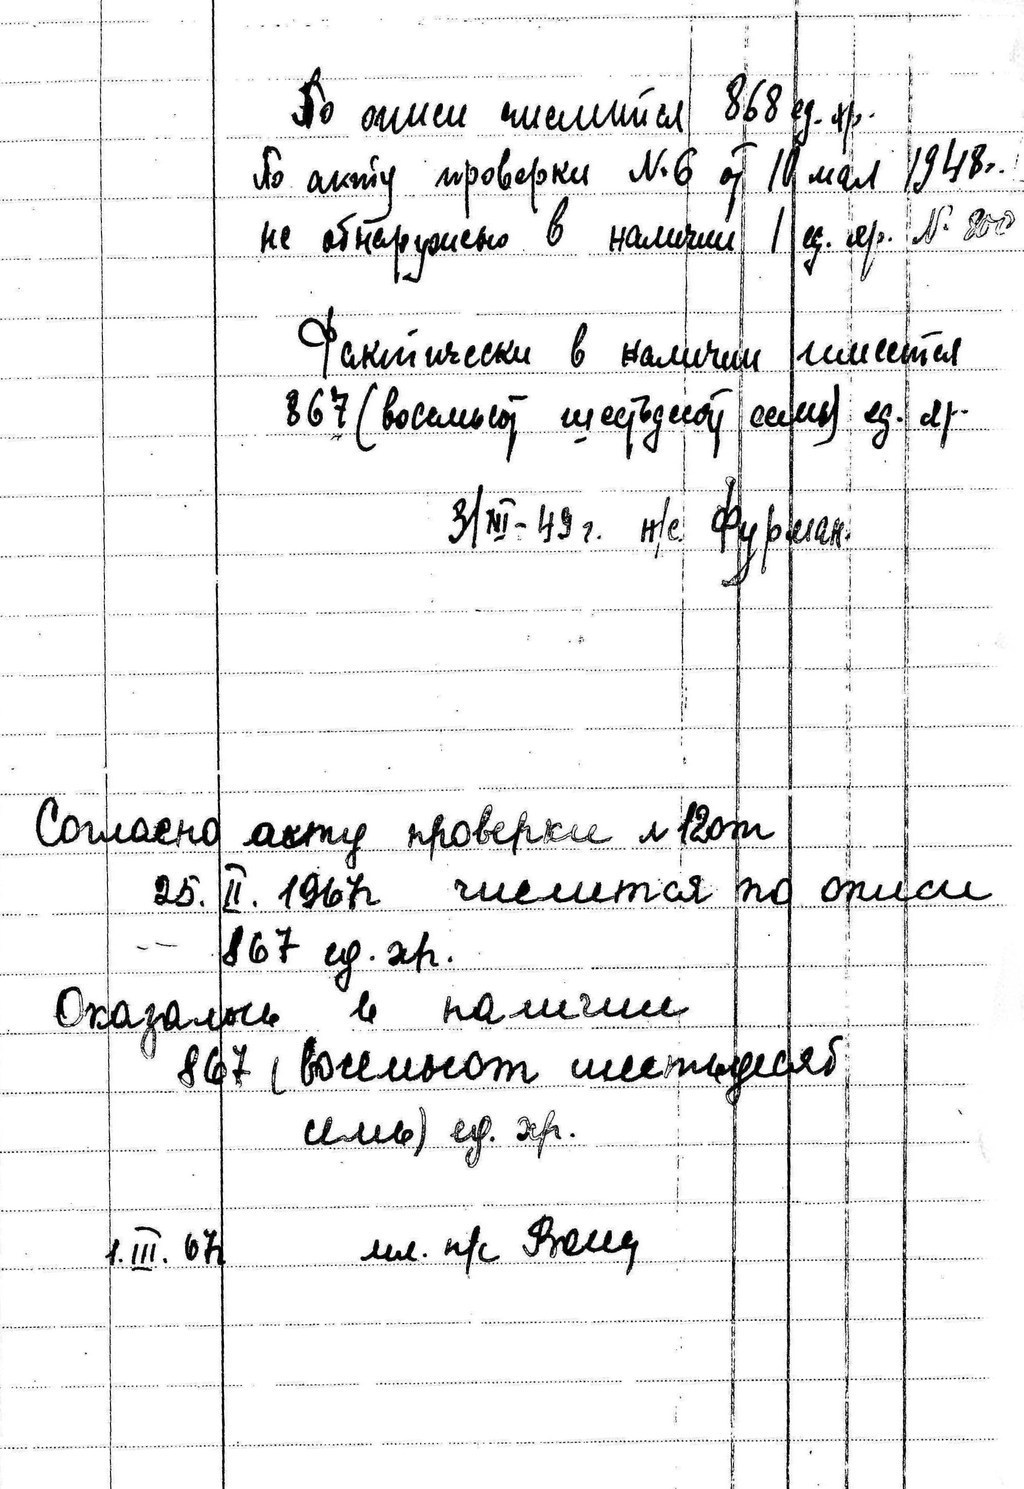 По описи числится 868 ед. хр.
По акту проверки №6 от 10 мая 1948г.
не обнаружено в наличии 1 ед. хр. № 800
Фактически в наличии имеется
867 (восемьсот шестьдесят семь) ед. хр.
3/XII-49 г. н/с Фурман.
Согласно акту проверки №12 от
25. II. 1967г. числится по описи
867 ед. хр.
Оказалось в наличии
867 (восемьсот шестьдесят
семь) ед. хр.
1. III. 67г. мл. н/с